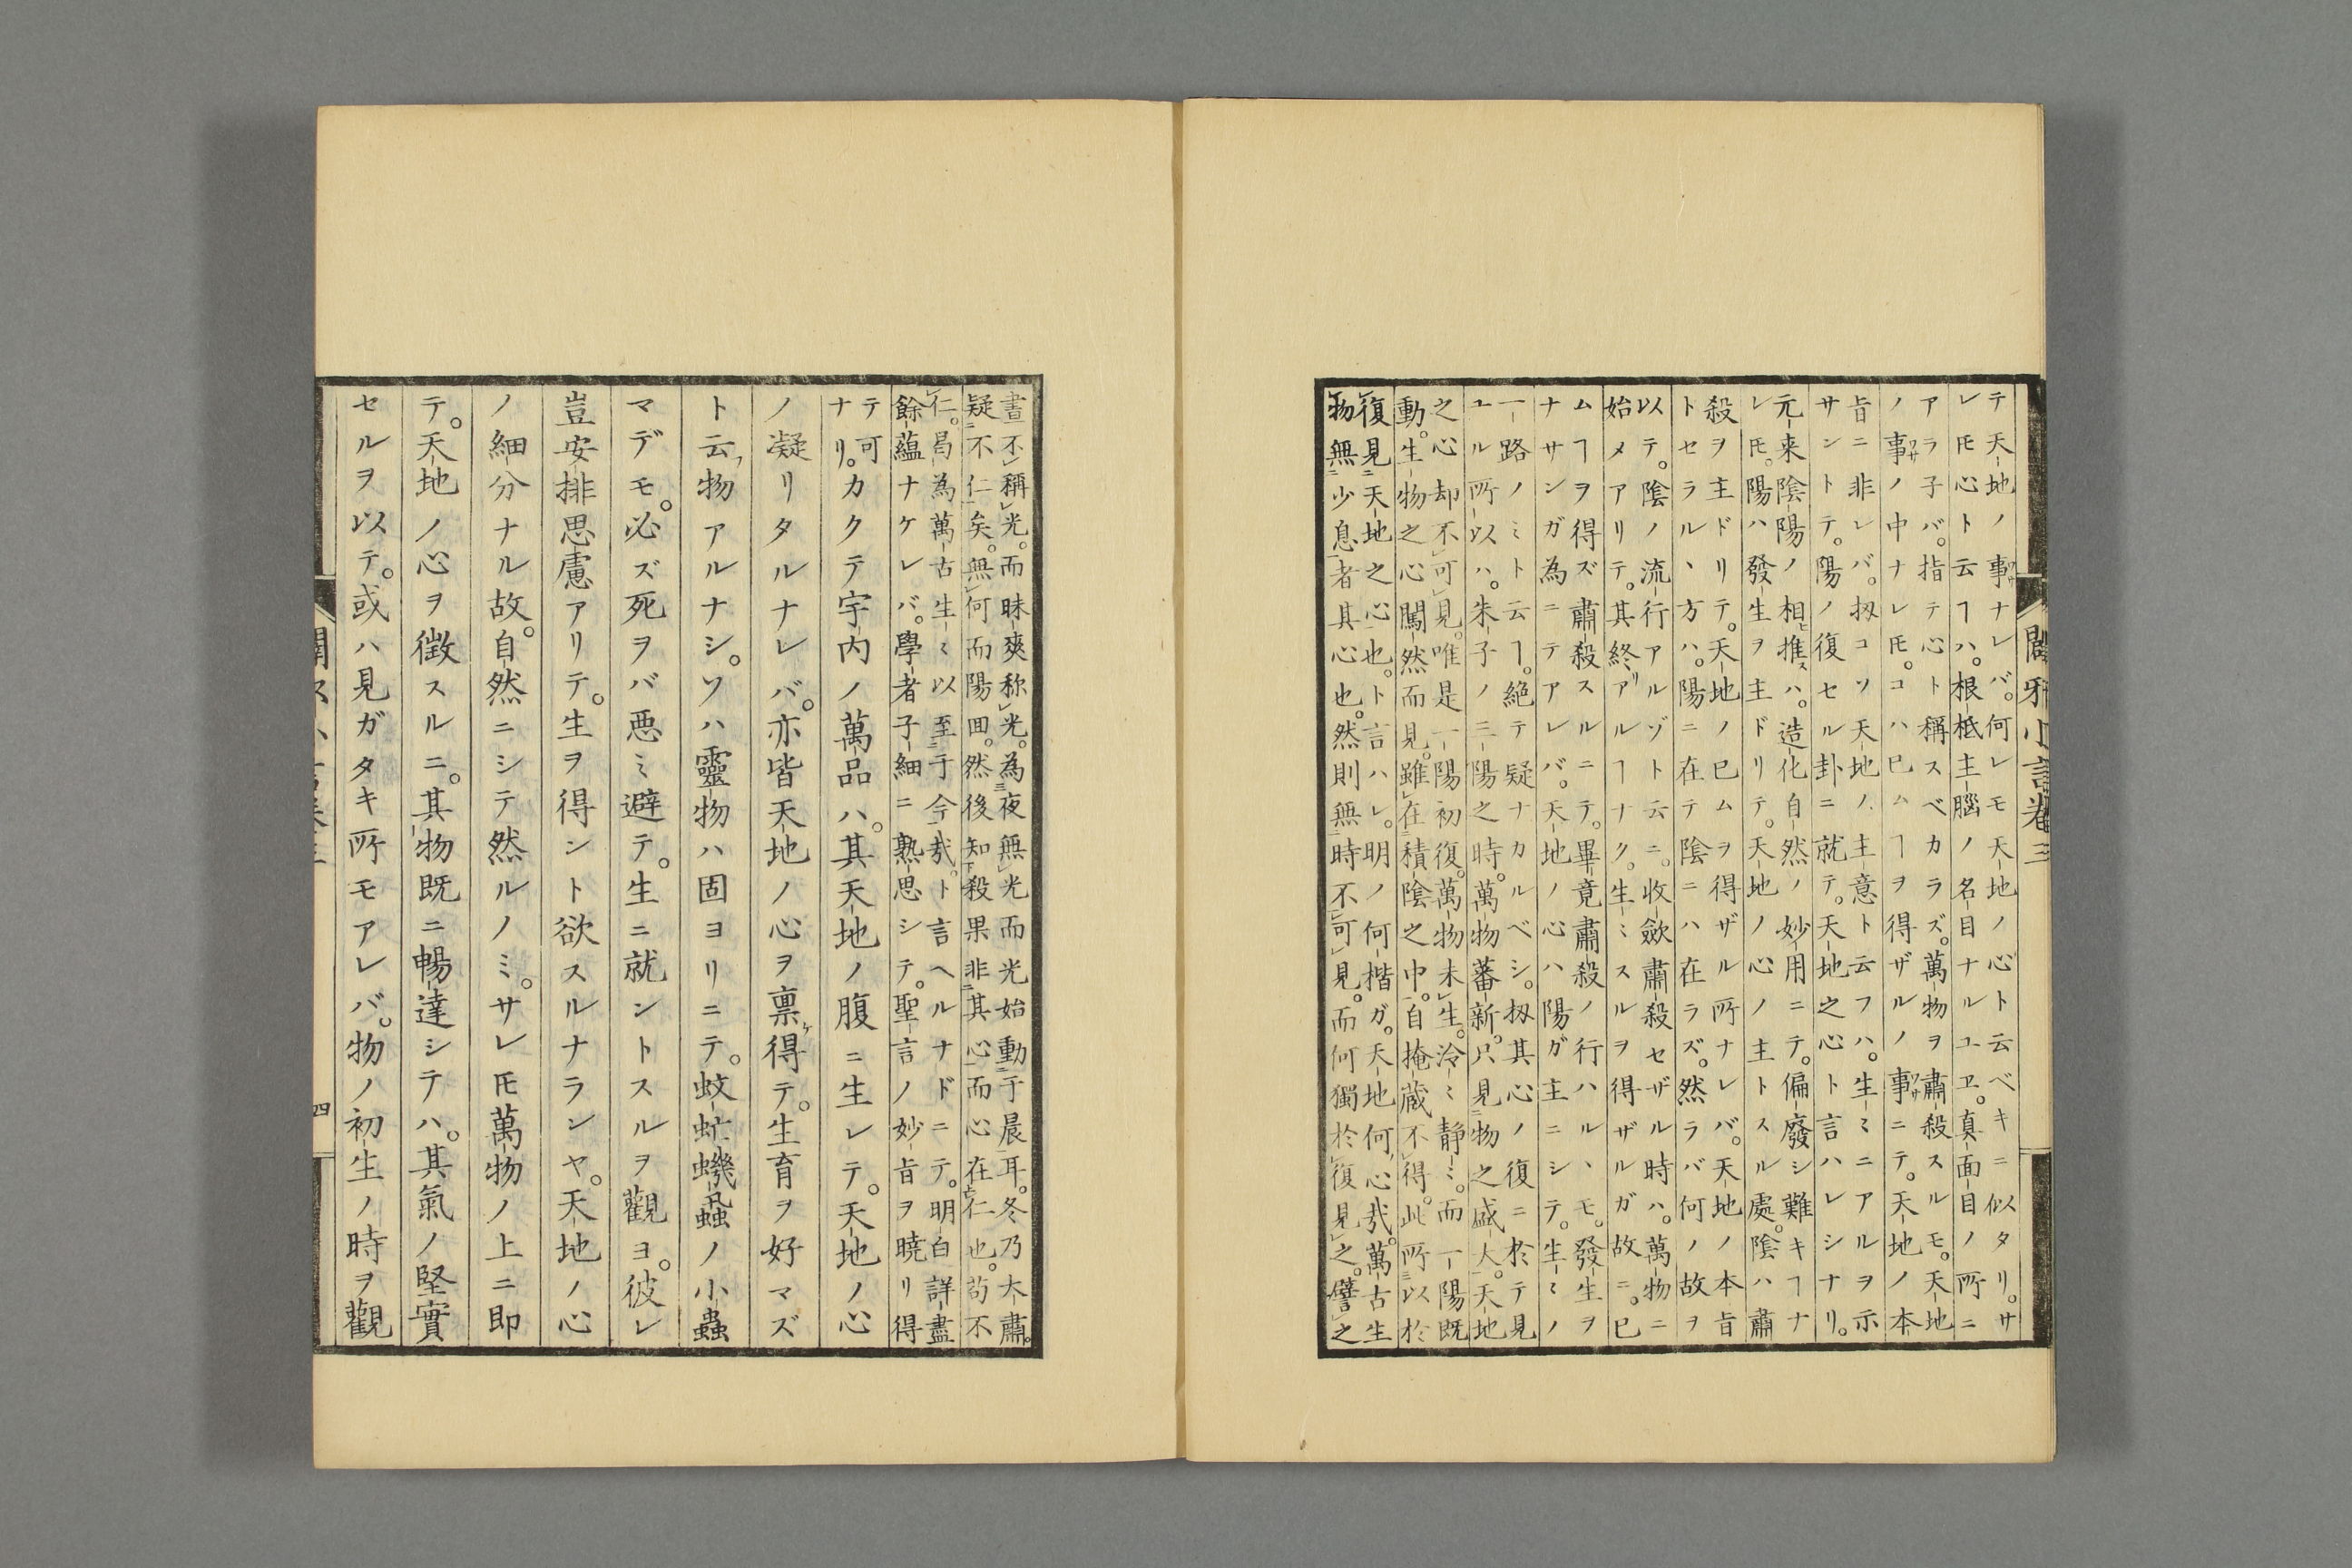 テ天地ノ事ナレバ。何レモ天地ノ心ト云ベキニ似タリ。サ
レ𪜈心ト云ヿハ。根柢主腦ノ名目ナルユヱ。真面目ノ所ニ
アラ子バ。指テ心ト稱スベカラズ。萬物ヲ肅殺スルモ。天地
ノ事ノ中ナレ𪜈。コハ已ムヿヲ得ザルノ事ニテ。天地ノ本
旨ニ非レバ。扨コソ天地ノ主意ト云フハ。生〻ニアルヲ示
サントテ。陽ノ復セル卦ニ就テ。天地之心ト言ハレシナリ。
元来陰陽ノ相推スハ。造化自然ノ妙用ニテ。偏廢シ難キヿナ
レ𪜈。陽ハ發生ヲ主ドリテ。天地ノ心ノ主トスル處。陰ハ肅
殺ヲ主ドリテ。天地ノ已ムヲ得ザル所ナレバ。天地ノ本旨
トセラルヽ方ハ。陽ニ在テ陰ニハ在ラズ。然ラバ何ノ故ヲ
以テ。陰ノ流行アルゾト云ニ。收斂肅殺セザル時ハ。萬物ニ
始メアリテ。其終リアルヿナク。生〻スルヲ得ザルガ故ニ。已
ムヿヲ得ズ肅殺スルニテ。畢竟肅殺ノ行ハルヽモ。發生ヲ
ナサンガ為ニテアレバ。天地ノ心ハ陽ガ主ニシテ。生〻ノ
一路ノミト云ヿ。絶テ疑ナカルベシ。扨其心ノ復ニ於テ見
ユル所以ハ。朱子ノ三陽之時。萬物蕃新。只見物之盛大。天地
之心却不可見。唯是一陽初復。萬物未生。冷〻静〻。而一陽既
動。生物之心闖然而見。雖在積陰之中。自掩蔵不得。此所以於
復見天地之心也。ト言ハレ。明ノ何楷ガ。天地何心哉。萬古生
物無少息者其心也。然則無時不可見。而何獨於復見之。譬之
晝不稱光。而昧爽称光。為夜無光而光始動于晨耳。冬乃大肅。
疑不仁矣。無何而陽回。然後知殺果非其心而心在仁也。苟不
仁。曷為萬古生〻以至于今哉。ト言ヘルナドニテ。明白詳盡
餘蘊ナケレバ。學者子細ニ熟思シテ。聖言ノ妙旨ヲ曉リ得
テ可
ナリ。カクテ宇内ノ萬品ハ。其天地ノ腹ニ生レテ。天地ノ心
ノ凝リタルナレバ。亦皆天地ノ心ヲ禀ケ得テ。生育ヲ好マズ
ト云フ物アルナシ。ソハ靈物ハ固ヨリニテ。蚊虻蟣蝨ノ小蟲
マデモ。必ズ死ヲバ悪ミ避テ。生ニ就ントスルヲ觀ヨ。彼レ
豈安排思慮アリテ。生ヲ得ント欲スルナランヤ。天地ノ心
ノ細分ナル故。自然ニシテ然ルノミ。サレ𪜈萬物ノ上ニ即
テ。天地ノ心ヲ徴スルニ。其物既ニ暢達シテハ。其氣ノ堅實
セルヲ以テ。或ハ見ガタキ所モアレバ。物ノ初生ノ時ヲ觀
四